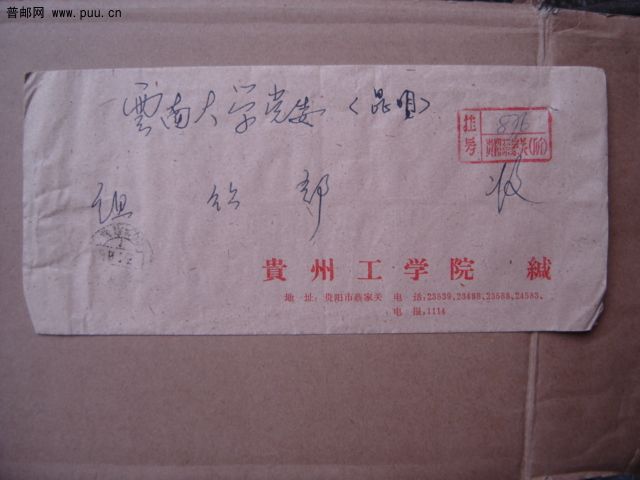 普邮网 www.puu.cn
雲南大学党委（昆明）
挂号 876
贵阳蔡家关(所)
组织部 收
貴州工学院 緘
地 址：贵阳市蔡家关 电 话：23839、23488、23588、24583、
电 报：1114